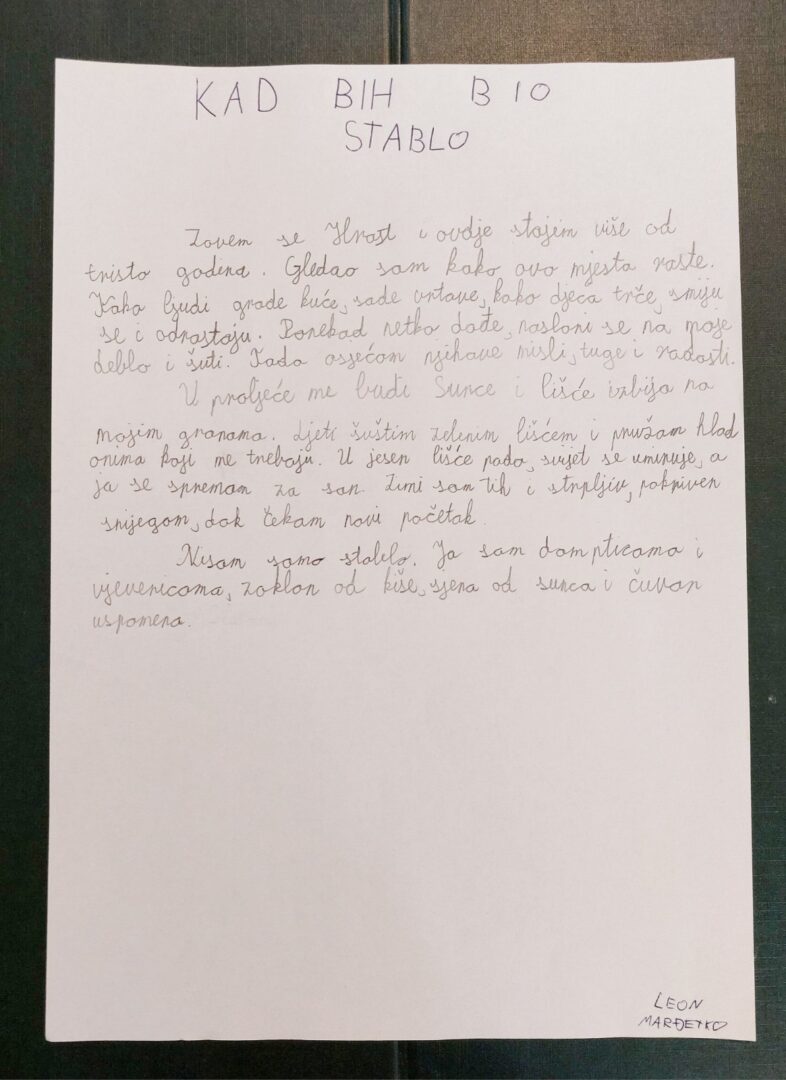 KAD BIH BIO
STABLO
Zovem se Hrast i ovdje stojim više od
tristo godina. Gledao sam kako ovo mjesto raste.
Kako ljudi grade kuće, sade vrtove, kako djeca trče, smiju
se i odrastaju. Ponekad netko dođe, nasloni se na moje
deblo i šuti. Tada osjećam njihove misli, tuge i radosti.
U proljeće me budi Sunce i lišće izbija na
mojim granama. Ljeti šuštim zelenim lišćem i pružam hlad
onima koji me trebaju. U jesen lišće pada, svijet se umiruje, a
ja se spremam za san. Zimi sam tih i strpljiv, pokriven
snijegom, dok čekam novi početak.
Nisam samo stablo. Ja sam dom pticama i
vjevericama, zaklon od kiše, sjena od sunca i čuvar
uspomena.
LEON
MARĐETKO